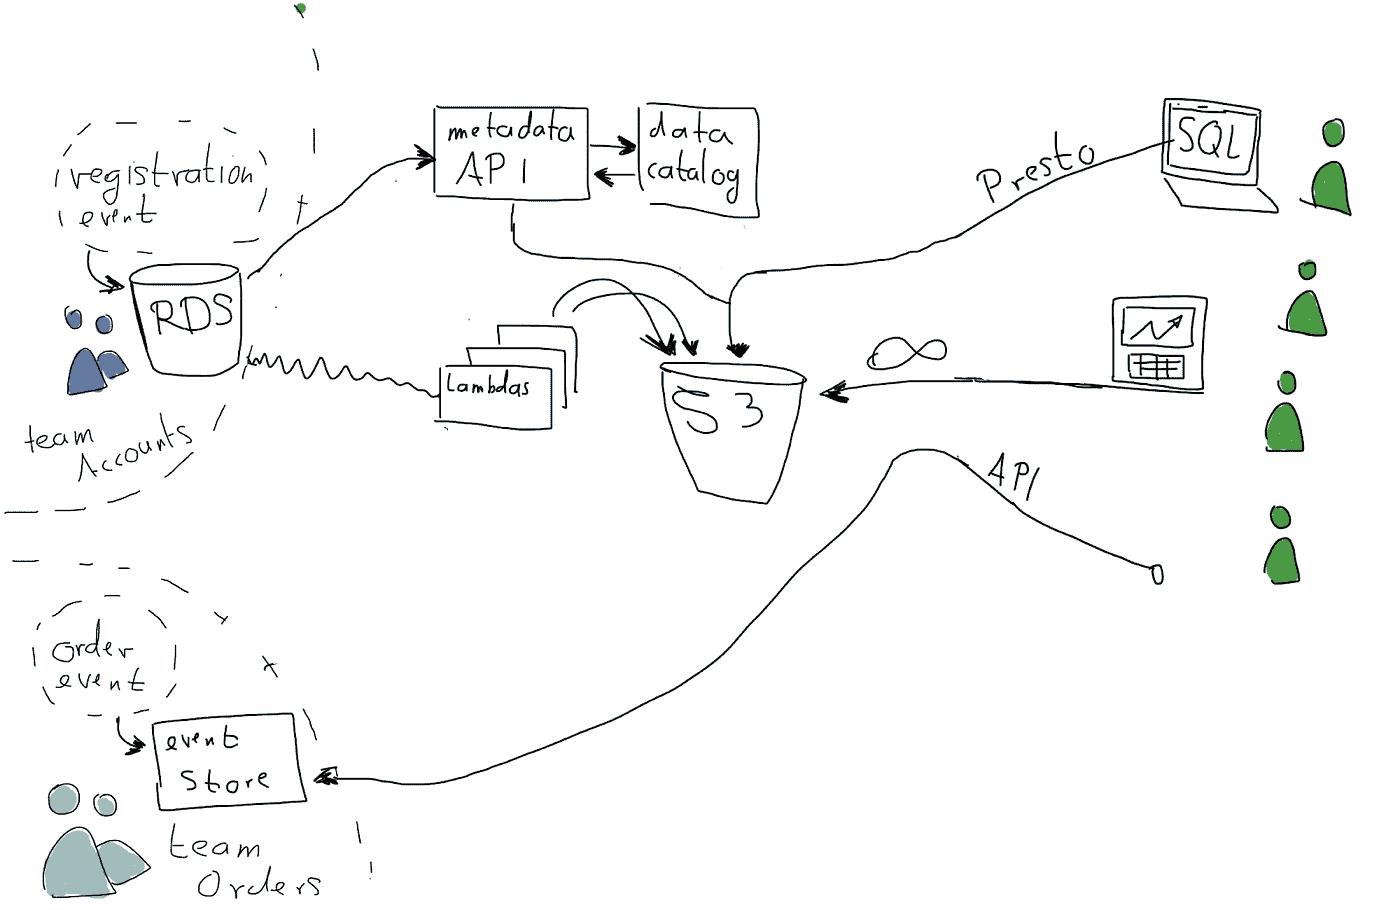 registration
event
RDS
team
Accounts
metadata
API
data
catalog
Lambdas
S3
Presto
SQL
API
order
event
event
Store
team
Orders